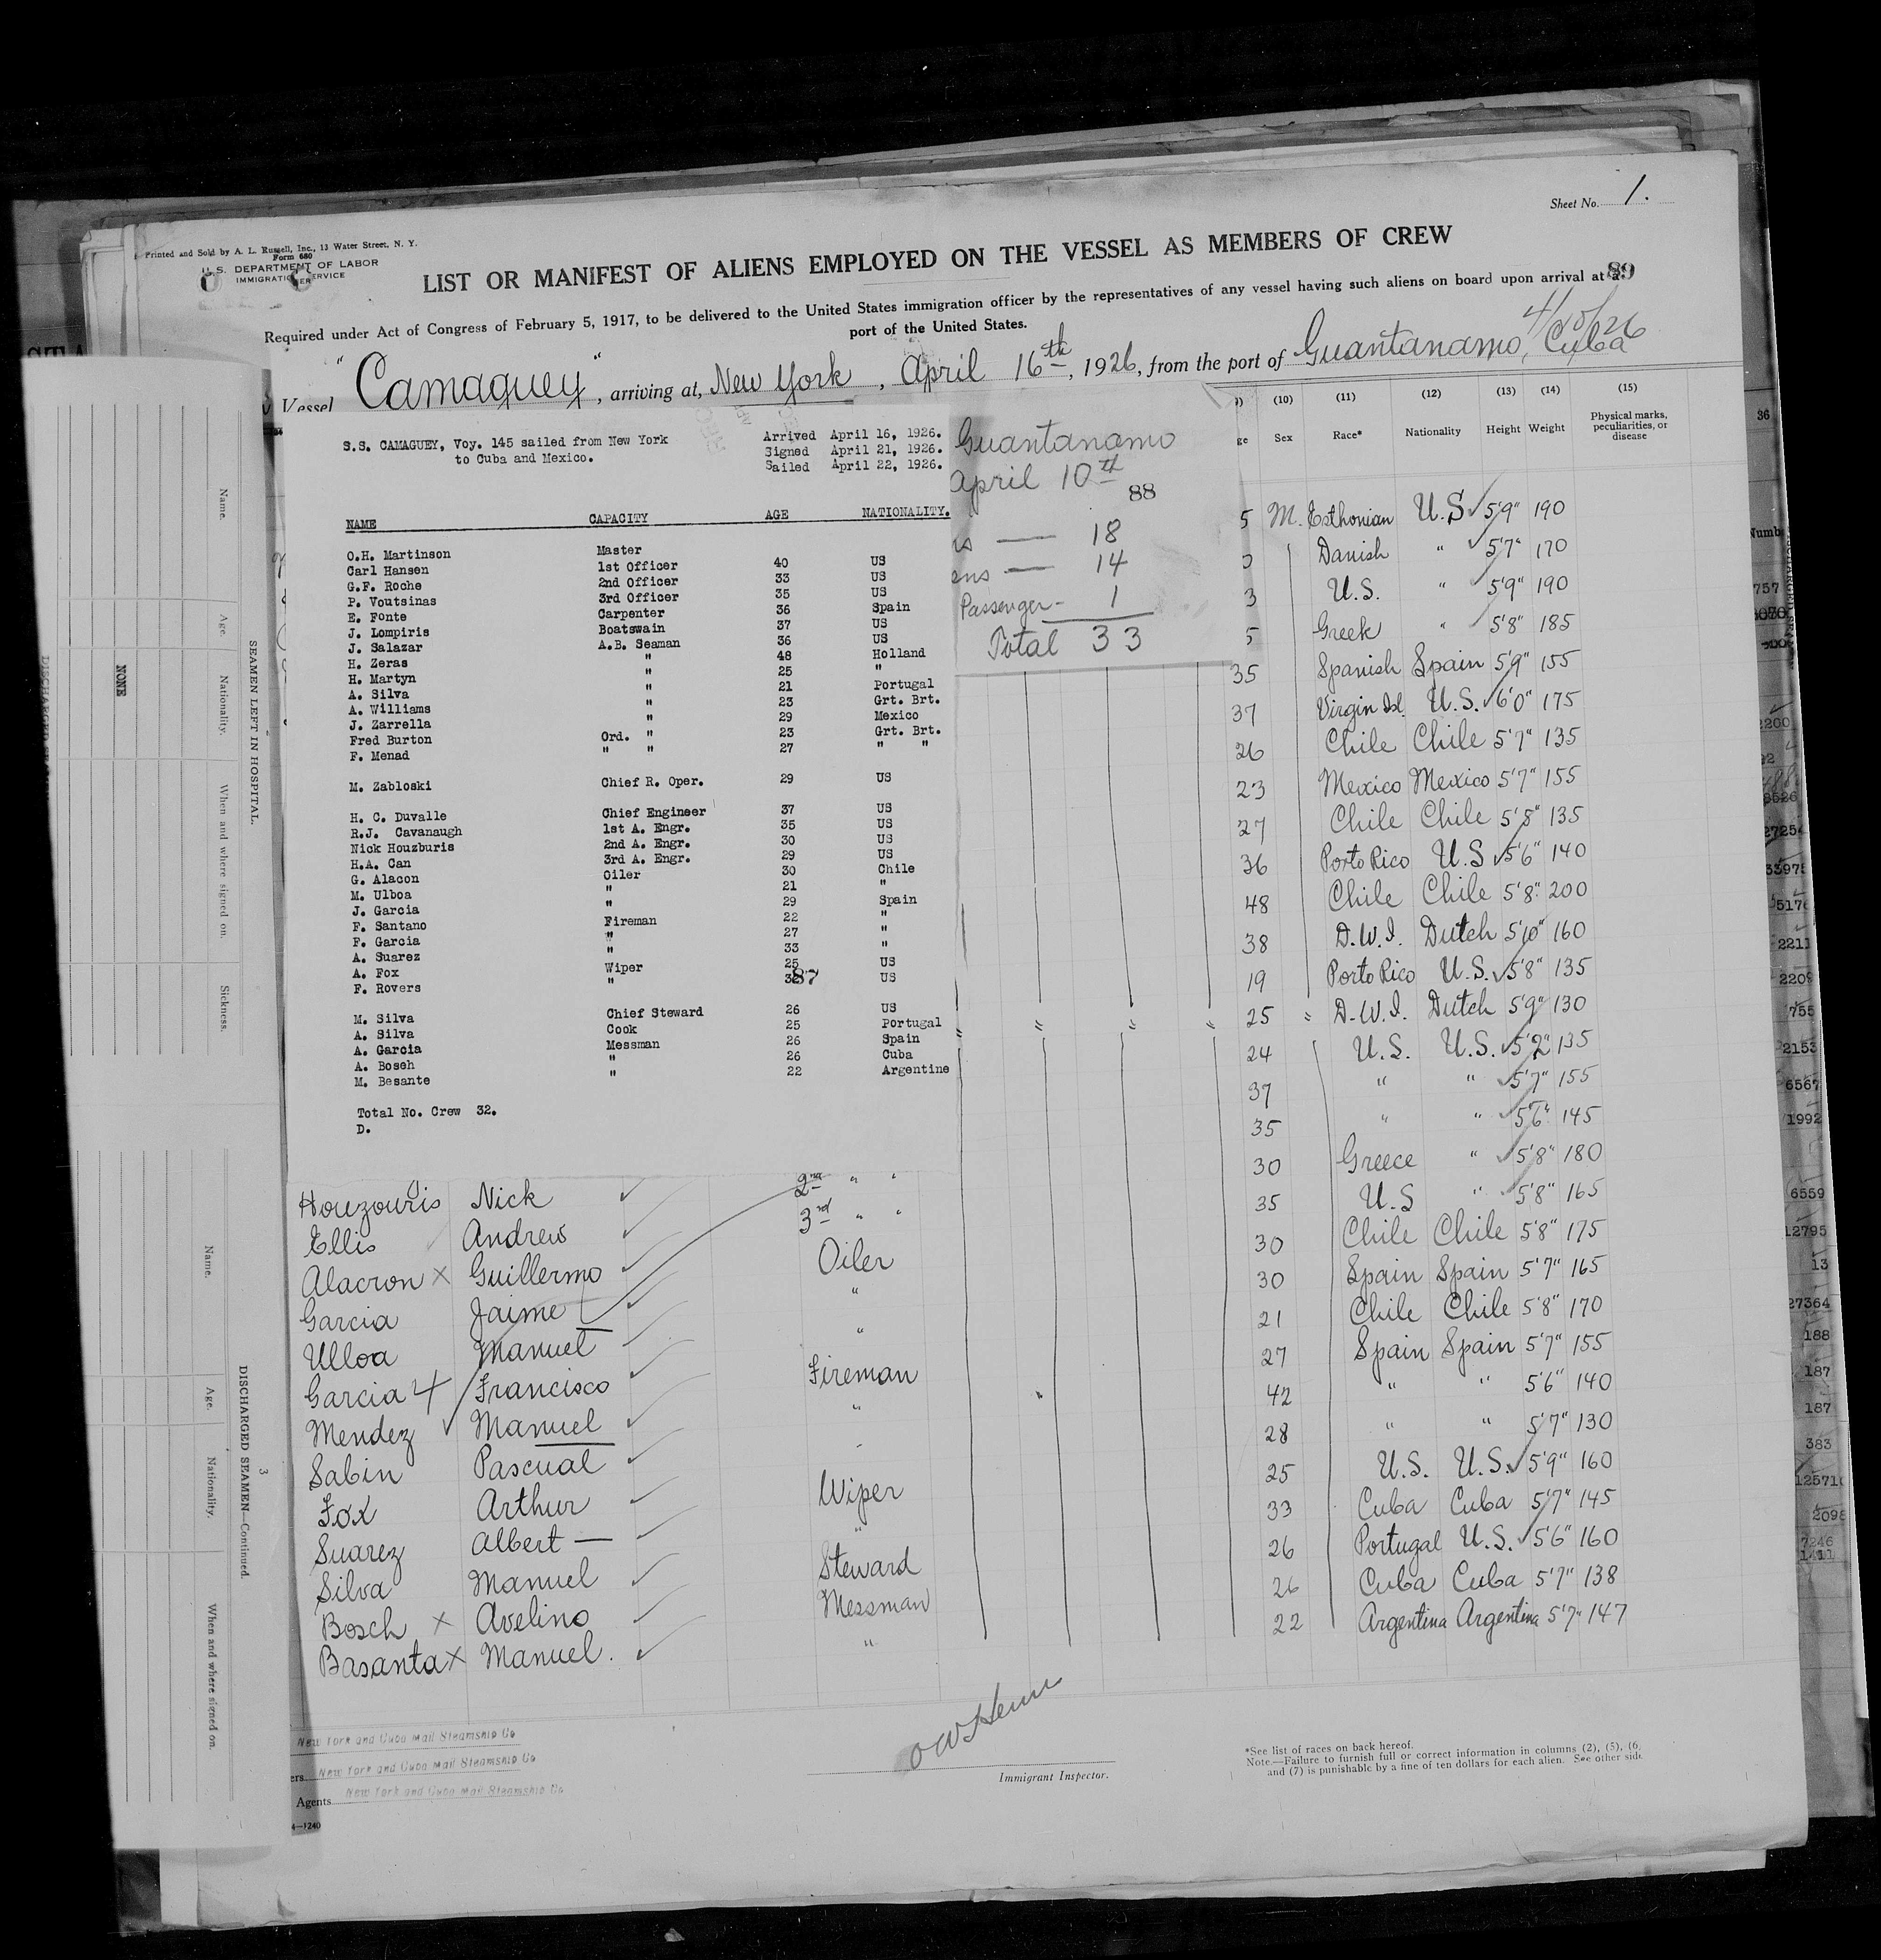 Sheet No. 1.
Printed and Sold by A. L. Russell, Inc., 13 Water Street, N. Y.
Form 680
U.S. DEPARTMENT OF LABOR
IMMIGRATION SERVICE
LIST OR MANIFEST OF ALIENS EMPLOYED ON THE VESSEL AS MEMBERS OF CREW
89
Required under Act of Congress of February 5, 1917, to be delivered to the United States immigration officer by the representatives of any vessel having such aliens on board upon arrival at a
port of the United States.
4/10/26
Vessel "Camaguey", arriving at, New York, April 16th, 1926, from the port of Guantanamo, Cuba
S.S. CAMAGUEY, Voy. 145 sailed from New York
to Cuba and Mexico.
Arrived April 16, 1926.
Signed April 21, 1926.
Sailed April 22, 1926.
NAME CAPACITY AGE NATIONALITY.
O.H. Martinson Master
Carl Hansen 1st Officer 40 US
G.F. Roche 2nd Officer 33 US
P. Voutsinas 3rd Officer 35 US
E. Fonte Carpenter 36 Spain
J. Lompiris Boatswain 37 US
J. Salazar A.B. Seaman 36 US
H. Zeras " 48 Holland
H. Martyn " 25 "
A. Silva " 21 Portugal
A. Williams " 23 Grt. Brt.
J. Zarrella " 29 Mexico
Fred Burton Ord. " 23 Grt. Brt.
F. Menad " " 27 " "
M. Zabloski Chief R. Oper. 29 US
H. C. Duvalle Chief Engineer 37 US
R.J. Cavanaugh 1st A. Engr. 35 US
Nick Houzburis 2nd A. Engr. 30 US
H.A. Can 3rd A. Engr. 29 US
G. Alacon Oiler 30 Chile
M. Ulboa " 21 "
J. Garcia " 29 Spain
F. Santano Fireman 22 "
F. Garcia " 27 "
A. Suarez " 33 "
A. Fox Wiper 25 US
F. Rovers " US
87
M. Silva Chief Steward 26 US
A. Silva Cook 25 Portugal
A. Garcia Messman 26 Spain
A. Boseh " 26 Cuba
M. Besante " 22 Argentine
Total No. Crew 32.
D.
Guantanamo
April 10th
88
18
14
Passenger - 1
Total 33
(10) (11) (12) (13) (14) (15)
Sex Race* Nationality Height Weight Physical marks, peculiarities, or disease
5 M. Esthonian U.S 5'9" 190
Danish " 5'7" 170
3 U.S. " 5'9" 190
5 Greek " 5'8" 185
35 Spanish Spain 5'9" 155
37 Virgin Isl. U.S. 6'0" 175
26 Chile Chile 5'7" 135
23 Mexico Mexico 5'7" 155
27 Chile Chile 5'8" 135
36 Porto Rico U.S 5'6" 140
48 Chile Chile 5'8" 200
38 D.W.I. Dutch 5'10" 160
19 Porto Rico U.S. 5'8" 135
25 " D.W.I. Dutch 5'9" 130
24 U.S. U.S. 5'2" 135
37 " " 5'7" 155
35 " " 5'6" 145
30 Greece " 5'8" 180
35 U.S " 5'8" 165
30 Chile Chile 5'8" 175
30 Spain Spain 5'7" 165
21 Chile Chile 5'8" 170
27 Spain Spain 5'7" 155
42 " " 5'6" 140
28 " " 5'7" 130
25 U.S. U.S. 5'9" 160
33 Cuba Cuba 5'7" 145
26 Portugal U.S. 5'6" 160
26 Cuba Cuba 5'7" 138
22 Argentina Argentina 5'7" 147
Houzouris Nick 2nd " "
Ellis Andrew 3rd " "
Alacron x Guillermo Oiler
Garcia Jaime "
Ulloa Manuel "
Garcia Francisco Fireman
Mendez Manuel "
Sabin Pascual
Fox Arthur Wiper
Suarez Albert — "
Silva Manuel Steward
Bosch x Avelino Messman
Basanta x Manuel. "
New York and Cuba Mail Steamship Co
ers New York and Cuba Mail Steamship Co
Agents New York and Cuba Mail Steamship Co
4—1240
Immigrant Inspector.
*See list of races on back hereof.
Note.—Failure to furnish full or correct information in columns (2), (5), (6,
and (7) is punishable by a fine of ten dollars for each alien. See other side
SEAMEN LEFT IN HOSPITAL.
Name. Age. Nationality. When and where signed on. Sickness.
NONE
3
DISCHARGED SEAMEN—Continued.
Name. Age. Nationality. When and where signed on.
36
Numb
757
2200
33975
5176
2211
2209
755
2153
6567
1992
6559
12795
13
27364
188
187
187
383
12571
2098
7246